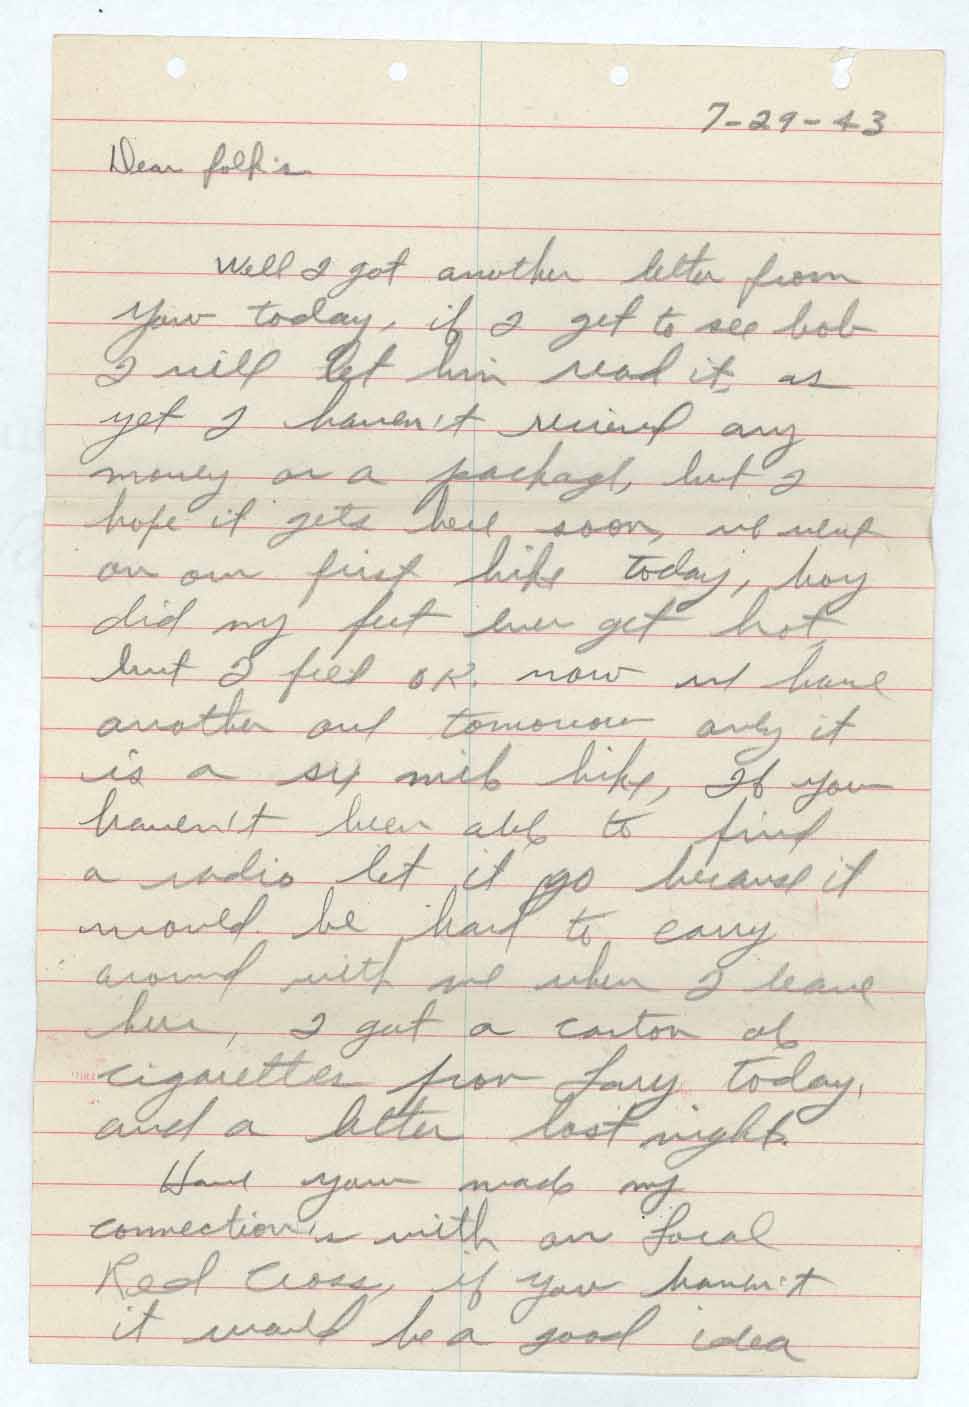 7-29-43
Dear folk's
Well I got another letter from
you today, if I get to see bob
I will let him read it, as
yet I haven't recieved any
money or a package, but I
hope it gets here soon, we went
on our first hike today, boy
did my feet ever get hot,
but I feel OK. now we have
another one tomorrow only it
is a six mile hike, If you
haven't been able to find
a radio let it go because it
would be hard to carry
around with me when I leave
here, I got a carton of
cigarettes from today,
and a letter last night.
Have you made my
connection's with our Local
Red Cross, if you haven't
it would be a good idea